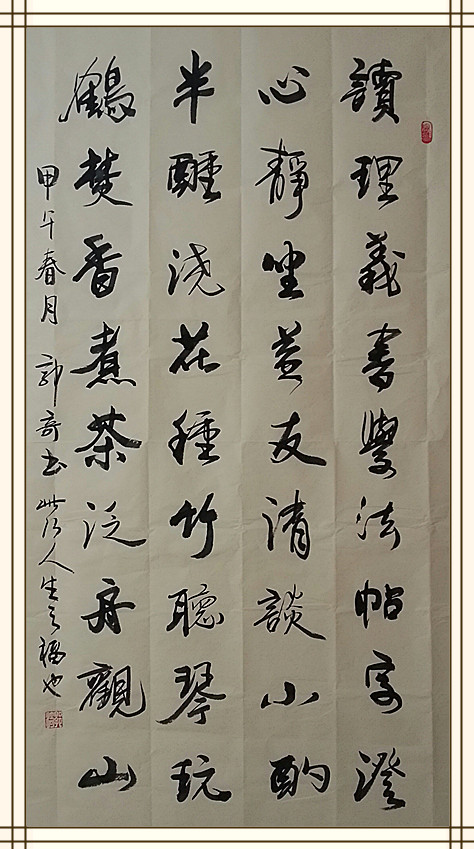 讀理義書學法帖字澄
心靜坐益友清談小酌
半醺浇花種竹聽琴玩
鶴焚香煮茶泛舟觀山
甲午春月 郭奇书 此乃人生之福也